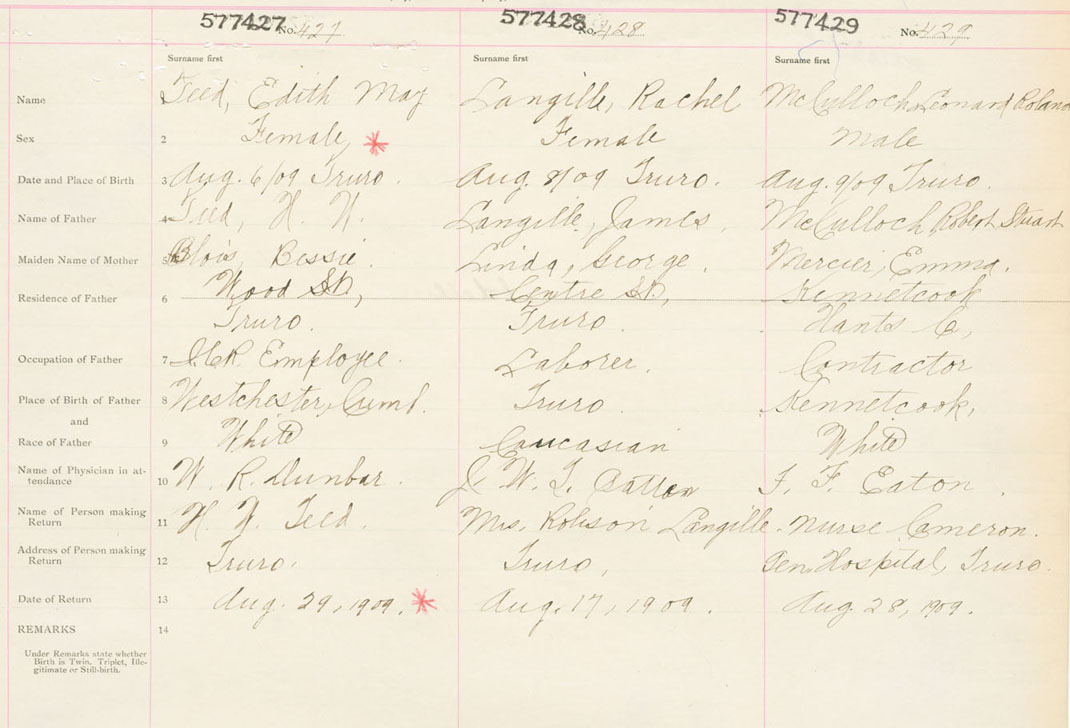 577427 No. 427 577428 No. 428 577429 No. 429
Surname first Surname first Surname first
Name Teed, Edith May Langille, Rachel McCulloch, Leonard Roland
Sex 2 Female Female Male
Date and Place of Birth 3 Aug. 6/09 Truro. Aug. 8/09 Truro. Aug. 9/09 Truro.
Name of Father 4 Teed, H. W. Langille, James. McCulloch, Robert Stuart
Maiden Name of Mother 5 Blois, Bessie. Linda, George. Mercier, Emma.
Residence of Father 6 Wood St, Centre St, Kennetcook
Truro. Truro. Hants Co,
Occupation of Father 7 I.C.R. Employee. Laborer. Contractor
Place of Birth of Father 8 Westchester, Cumb. Truro. Kennetcook,
and
Race of Father 9 White Caucasian White
Name of Physician in at-
tendance 10 W. R. Dunbar. W. T. F. F. Eaton.
Name of Person making
Return 11 H. W. Teed. Mrs. Robison Langille. Nurse Cameron.
Address of Person making
Return 12 Truro. Truro, Gen. Hospital, Truro.
Date of Return 13 Aug. 29, 1909. Aug. 17, 1909. Aug. 28, 1909.
REMARKS 14
Under Remarks state whether
Birth is Twin, Triplet, Ille-
gitimate or Still-birth.